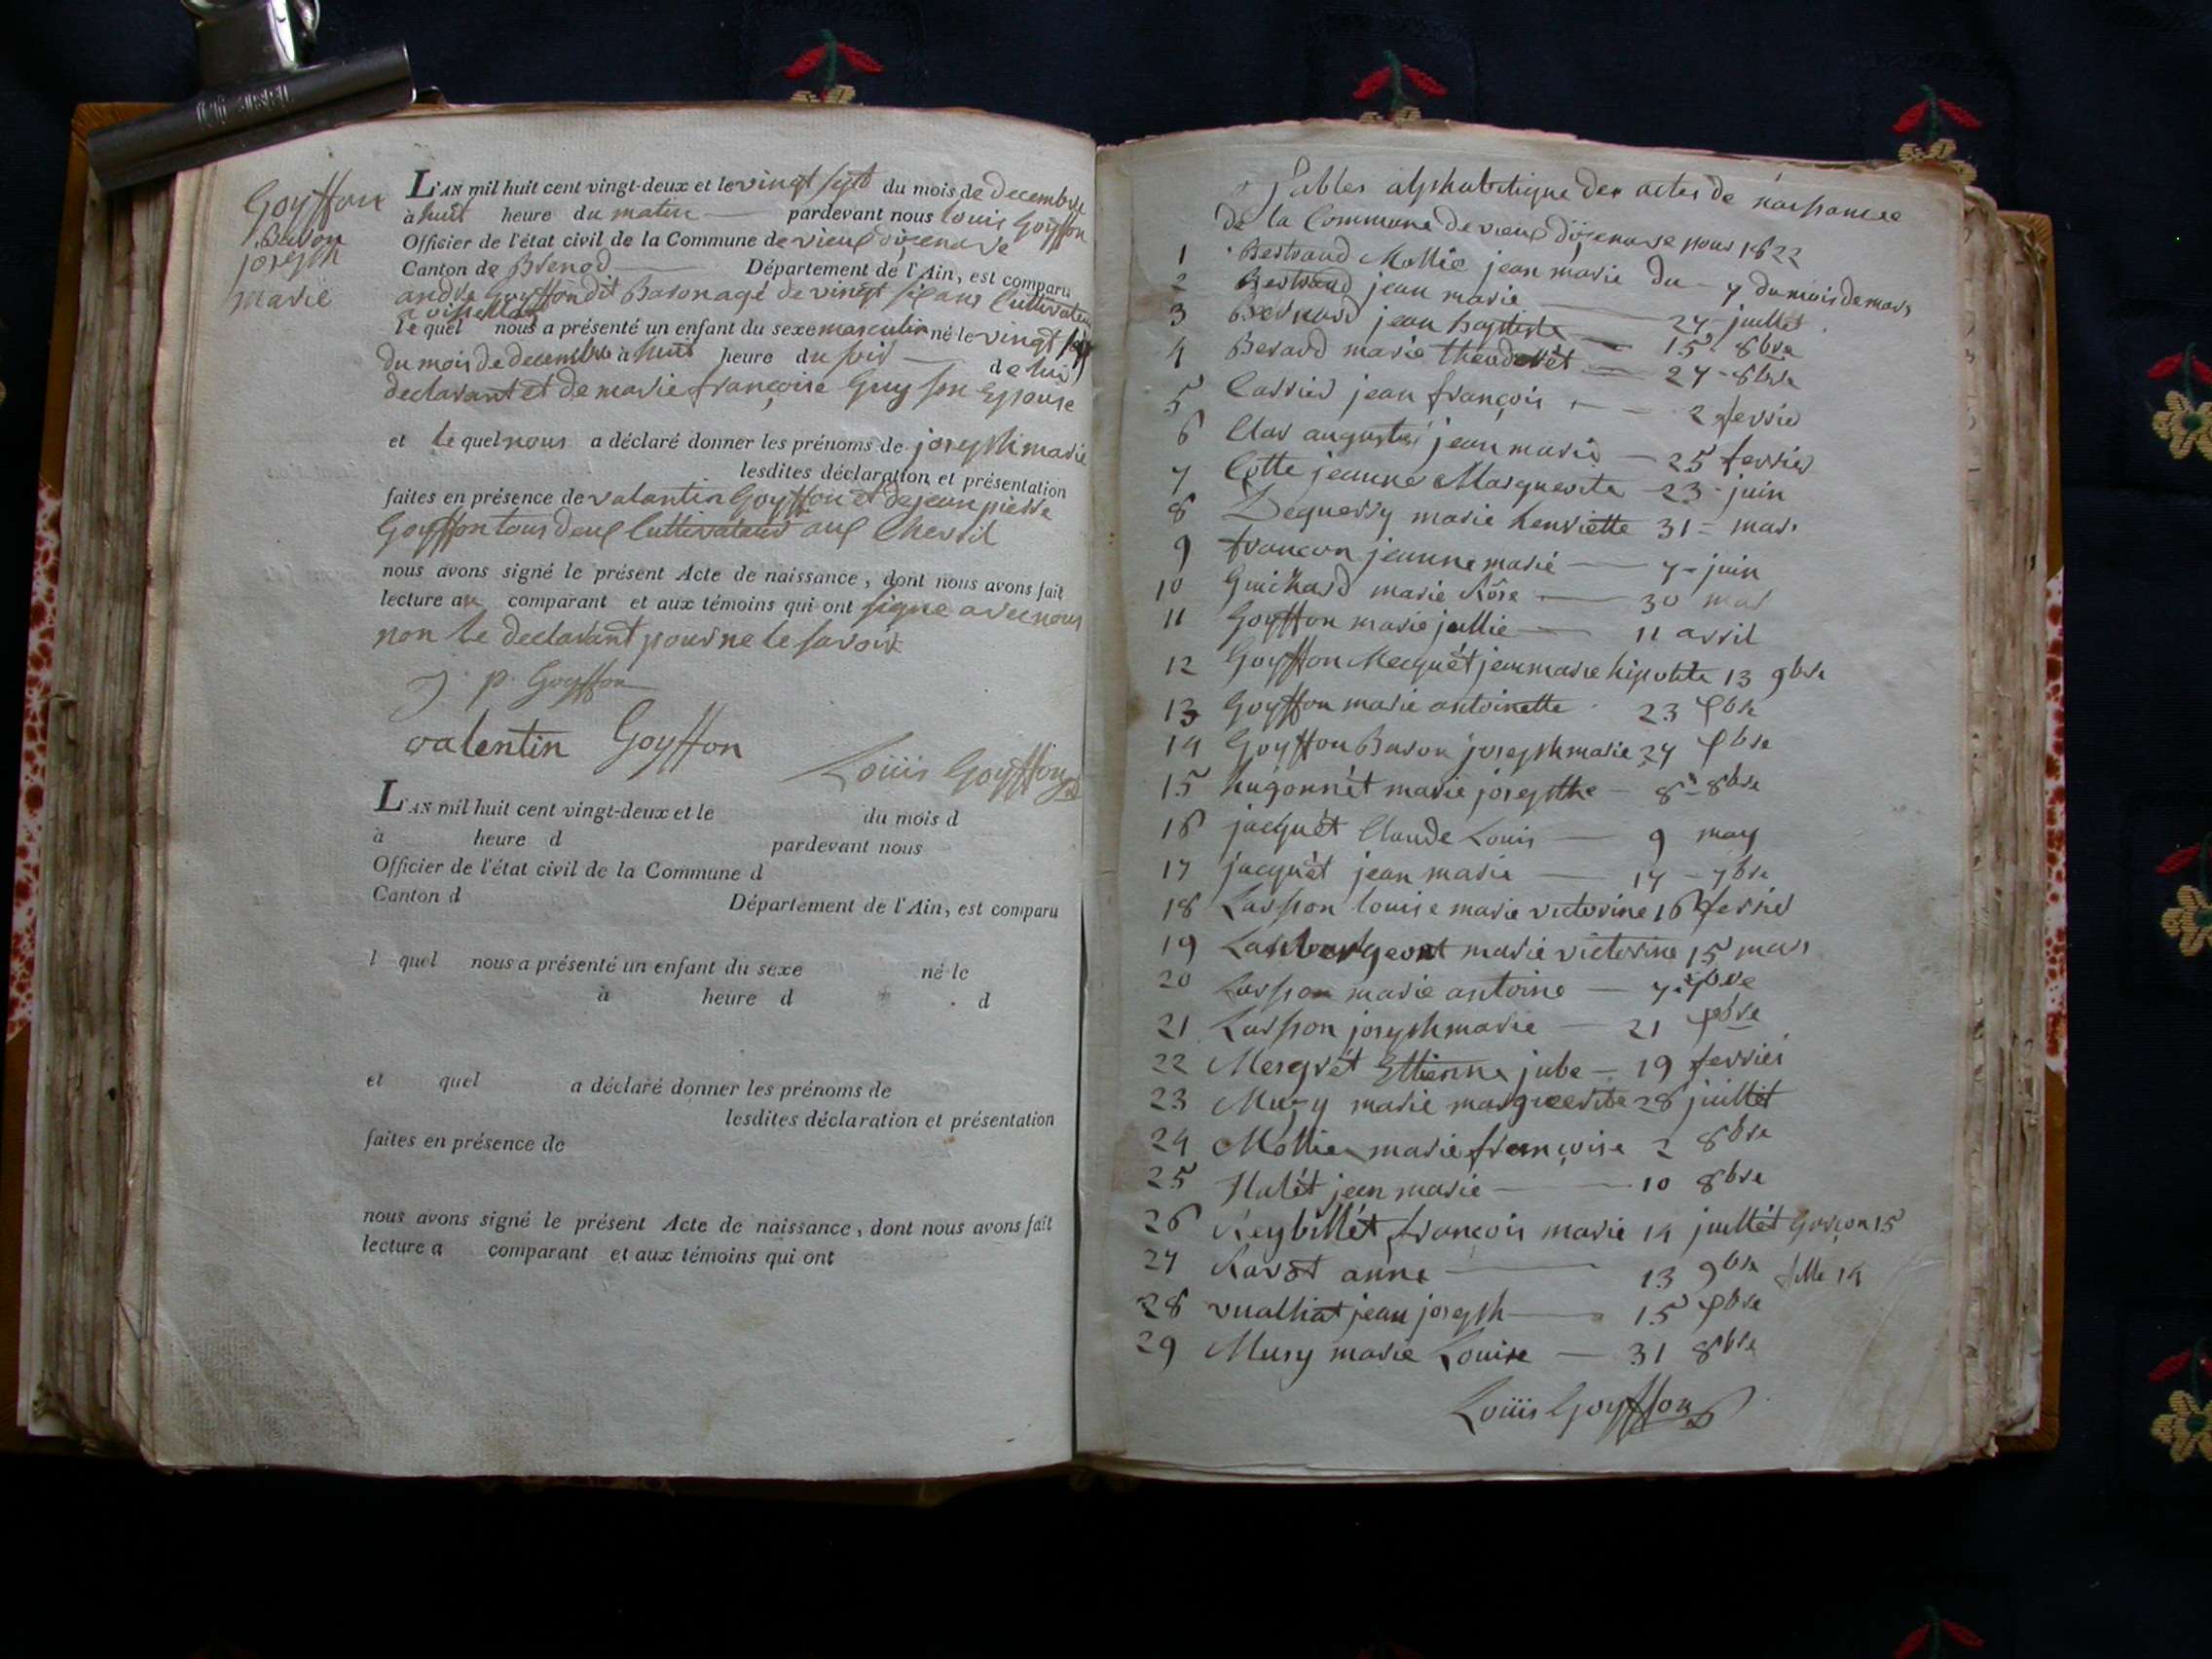 Goyffon
Baron
joseph
marie
L'AN mil huit cent vingt-deux et le vingt sept du mois de decembre
à huit heure du matin pardevant nous louis Goyffon
Officier de l'état civil de la Commune de vieux d'izenave
Canton de Brenod Département de l'Ain, est comparu
andre Goyffon dit Baron agé de vingt six ans Cultivateur
le quel nous a présenté un enfant du sexe masculin né le vingt
du mois de decembre à huit heure du soir de lui
declarant et de marie françoise Guy son Epouse
et le quel nous a déclaré donner les prénoms de joseph marie
lesdites déclaration et présentation
faites en présence de valantin Goyffon et de jean pierre
Goyffon tous deux Cultivateur aux
nous avons signé le présent Acte de naissance, dont nous avons fait
lecture au comparant et aux témoins qui ont signe avec nous
non le declarant pour ne le savoir
J. p. Goyffon
valentin Goyffon
Louis Goyffon
L'AN mil huit cent vingt-deux et le du mois d
à heure d pardevant nous
Officier de l'état civil de la Commune d
Canton d Département de l'Ain, est comparu
l quel nous a présenté un enfant du sexe né le
à heure d d
et quel a déclaré donner les prénoms de
lesdites déclaration et présentation
faites en présence de
nous avons signé le présent Acte de naissance, dont nous avons fait
lecture a comparant et aux témoins qui ont
Tables alphabetique des actes de naissances
de la Commune de vieux d'izenave pour 1822
1 Bertrand Mollie jean marie du 7 du mois de mars
2 Bertrand jean marie 27 juillet
3 Bernard jean baptiste 15 8bre
4 Berard marie 27 8bre
5 Carrier jean françois 2 fevrier
6 Clar jean marie 25 fevrier
7 Cotte jeanne Marguerite 23 juin
8 Deguerry marie henriette 31 mars
9 francon jeanne marie 7 juin
10 Guichard marie Rôse 30 mai
11 Goyffon marie jullie 11 avril
12 Goyffon Mecquét jean marie hipolite 13 9bre
13 Goyffon marie antoinette 23 Xbre
14 Goyffon Baron joseph marie 27 Xbre
15 hugonnét marie josepthe 8 8bre
16 jacquét Claude Louis 9 may
17 jacquét jean marie 17 7bre
18 Larsson louise marie victorine 16 fevrier
19 marie victorine 15 mars
20 Larsson marie antoine 7
21 Larsson joseph marie 21 Xbre
22 Mergrét Ettienne jube 19 fevrier
23 Mury marie marguerite 28 juillét
24 Mollie marie françoise 2 8bre
25 Halét jean marie 10 8bre
26 Reybillét françois marie 14 juillét garçon 15
27 Ravot anne 13 9bre fille 14
28 vualliat jean joseph 15 Xbre
29 Mury marie Louise 31 8bre
Louis Goyffon